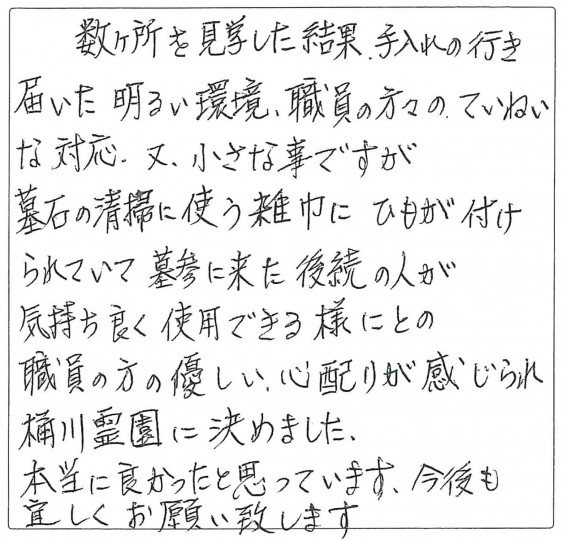 数ヶ所を見学した結果、手入れの行き
届いた明るい環境、職員の方々の、ていねい
な対応、又、小さな事ですが
墓石の清掃に使う雑巾にひもが付け
られていて墓参に来た後続の人が
気持ち良く使用できる様にとの
職員の方の優しい、心配りが感じられ
桶川霊園に決めました、
本当に良かったと思っています、今後も
宜しくお願い致します